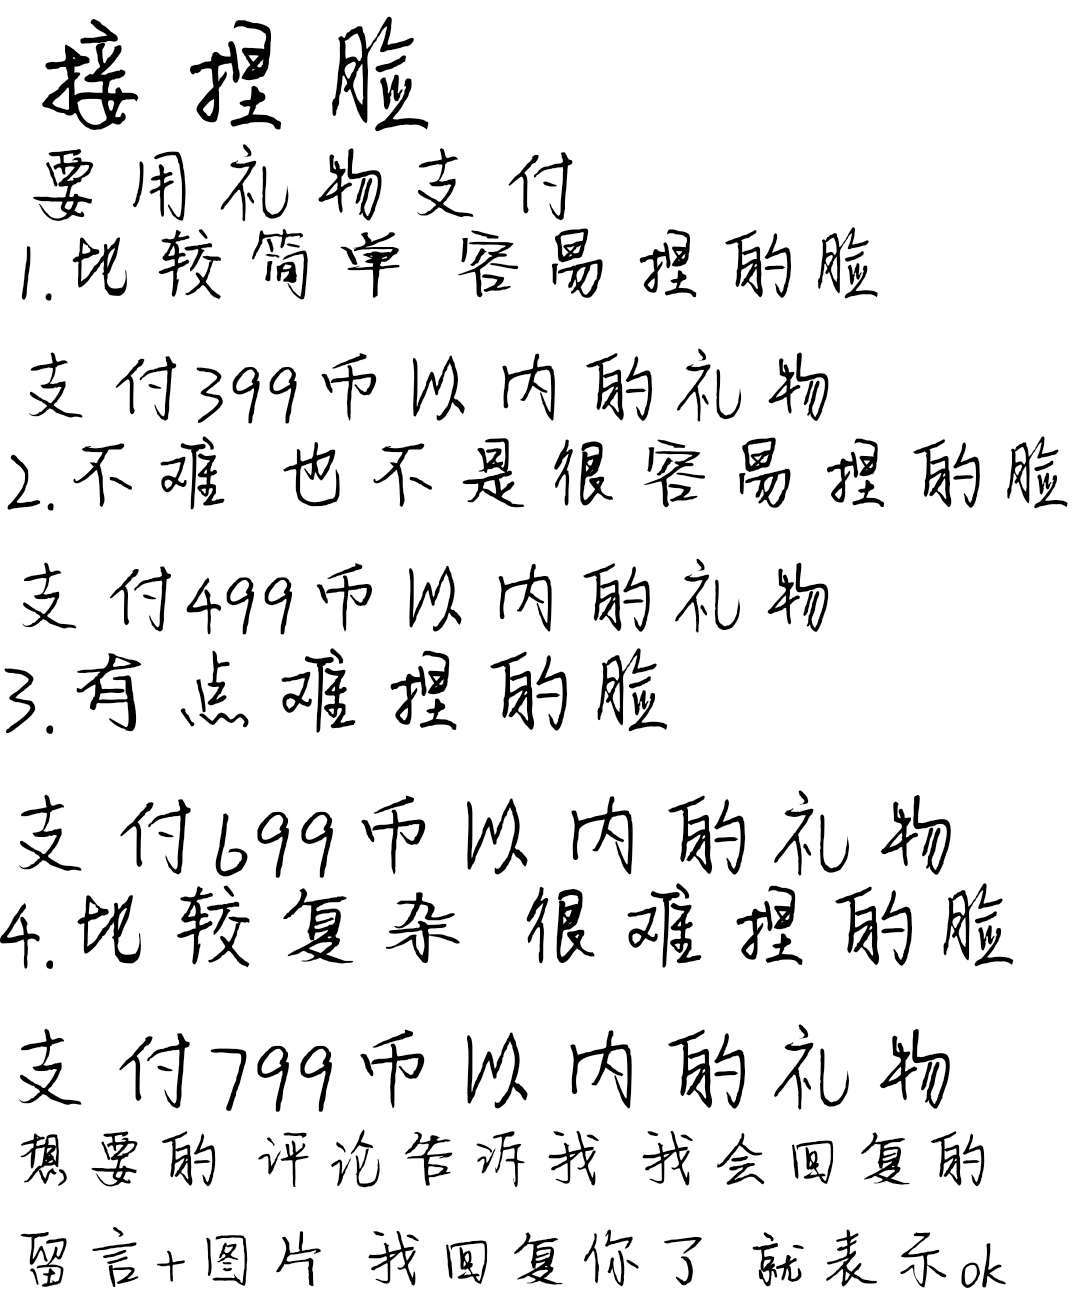 接捏脸
要用礼物支付
1.比较简单 容易捏的脸
支付399币以内的礼物
2.不难 也不是很容易捏的脸
支付499币以内的礼物
3.有点难捏的脸
支付699币以内的礼物
4.比较复杂 很难捏的脸
支付799币以内的礼物
想要的 评论告诉我 我会回复的
留言+图片 我回复你了 就表示ok